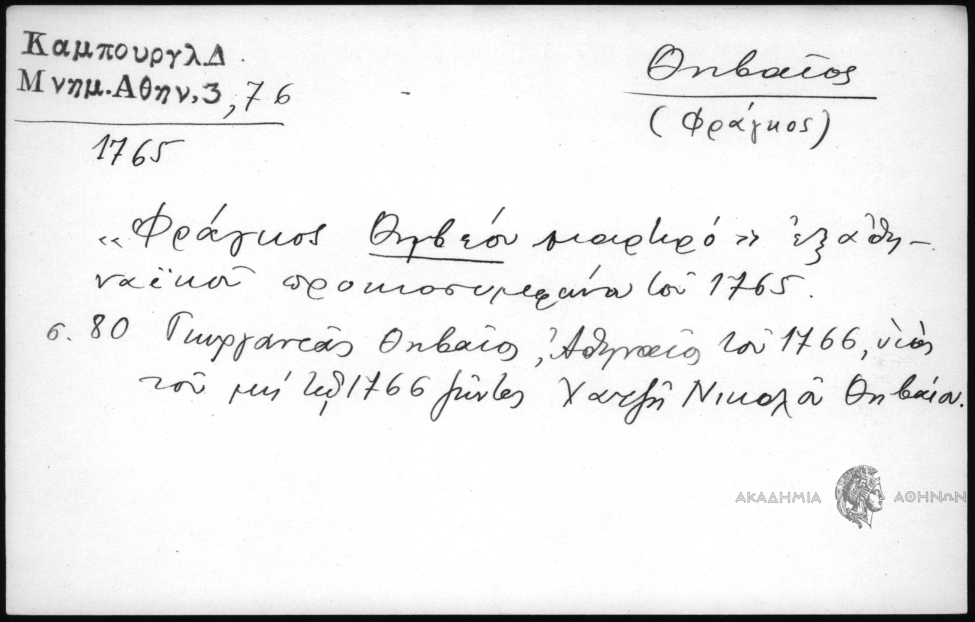 Καμπουργλ.Δ.
Μνημ.Αθην.3,76
1765
Θηβαῖος
(Φράγκος)
«Φράγκος Θηβέου μαρτιρό» ἐξ ἀθη-
ναϊκοῦ προικοσυμφώνου τοῦ 1765.
σ. 80 Γεωργαντᾶς Θηβαῖος, Ἀθηναῖος τοῦ 1766, υἱὸς
τοῦ μή τῷ 1766 ζῶντος Χατζῆ Νικολάου Θηβαίου.
ΑΚΑΔΗΜΙΑ ΑΘΗΝΩΝ